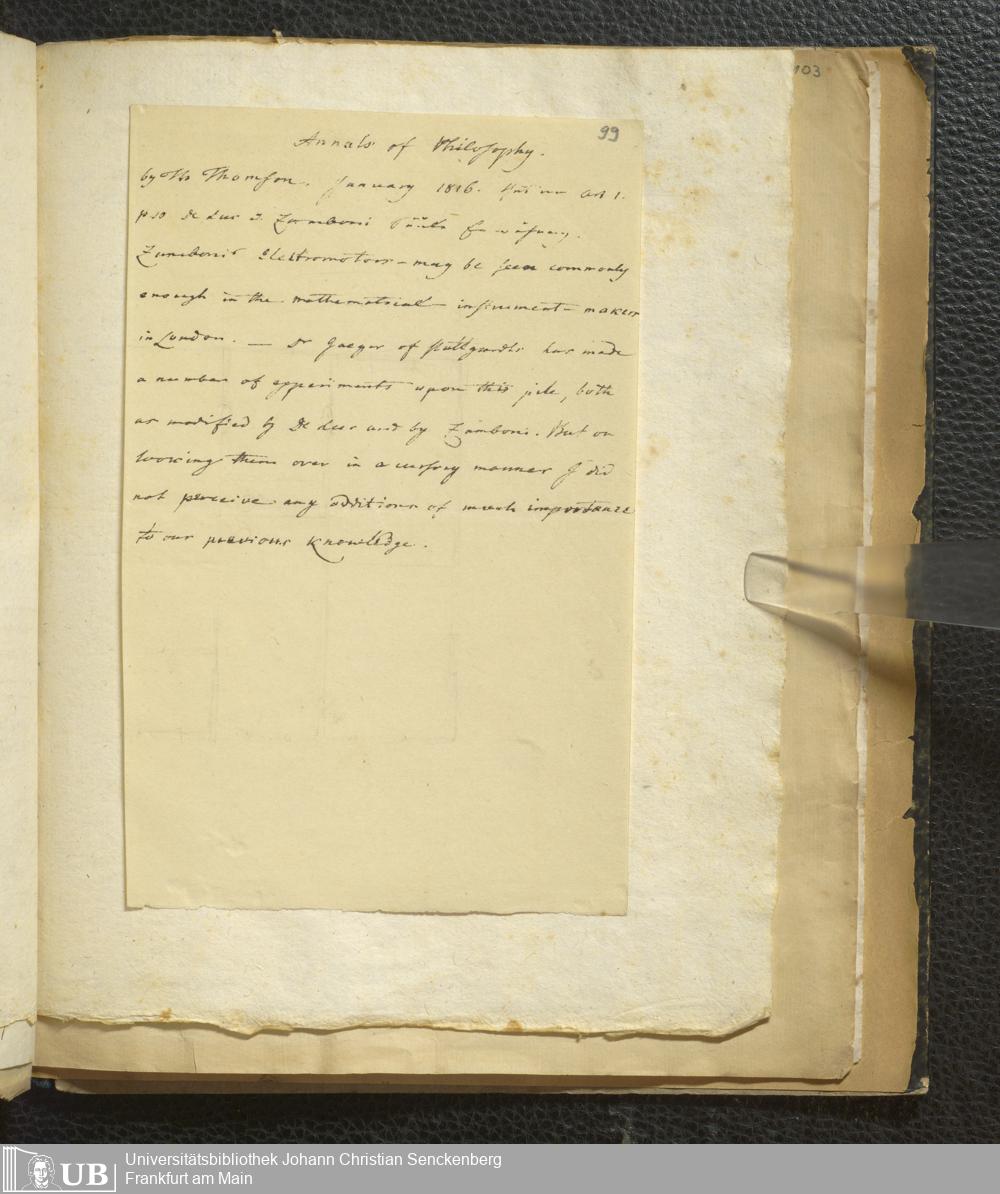 103
99
Annals of Philosophy.
by Th Thomson. January 1816. Art 1.
p 10 De Luc Zamboni
Zambonis Electromotors – may be seen commonly
enough in the mathematical instrument – makers
in London. — Dr Jaeger of Stuttgardt has made
a number of experiments upon this pile, both
as modified by De Luc and by Zamboni. But on
looking them over in a cursory manner I did
not perceive any additions of much importance
to our previous knowledge.
UB
Universitätsbibliothek Johann Christian Senckenberg
Frankfurt am Main